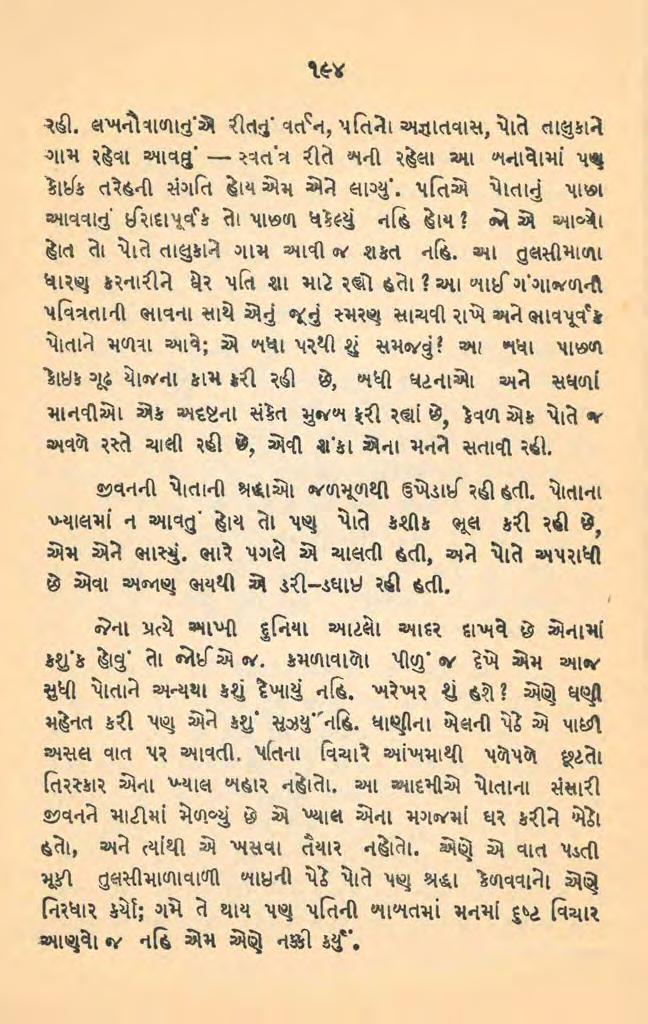 ૧૯૪
રહી. લખનૌવાળાનું એ રીતનું વર્તન, પતિનો અજ્ઞાતવાસ, પોતે તાલુકાને
ગામ રહેવા આવવું — સ્વતંત્ર રીતે બની રહેલા આ બનાવોમાં પણ
કોઈક તરેહની સંગતિ હોય એમ એને લાગ્યું. પતિએ પોતાનું પાછા
આવવાનું ઈરાદાપૂર્વક તો પાછળ ધકેલ્યું નહિ હોય? જો એ આવ્યો
હોત તો પોતે તાલુકાને ગામ આવી જ શકત નહિ. આ તુલસીમાળા
ધારણ કરનારીને ઘેર પતિ શા માટે રહ્યો હતો? આ બાઈ ગંગાજળની
પવિત્રતાની ભાવના સાથે એનું જૂનું સ્મરણ સાચવી રાખે અને ભાવપૂર્વક
પોતાને મળવા આવે; એ બધા પરથી શું સમજવું? આ બધા પાછળ
કોઇક ગૂઢ યોજના કામ કરી રહી છે, બધી ઘટનાઓ અને સઘળાં
માનવીઓ એક અદૃષ્ટના સંકેત મુજબ ફરી રહ્યાં છે, કેવળ એક પોતે જ
અવળે રસ્તે ચાલી રહી છે, એવી શંકા એના મનને સતાવી રહી.
જીવનની પોતાની શ્રદ્ધાઓ જળમૂળથી ઉખેડાઈ રહી હતી. પોતાના
ખ્યાલમાં ન આવતું હોય તો પણ પોતે કશીક ભૂલ કરી રહી છે,
એમ એને ભાસ્યું. ભારે પગલે એ ચાલતી હતી, અને પોતે અપરાધી
છે એવા અજાણ ભયથી એ ડરી–ડઘાઇ રહી હતી.
જેના પ્રત્યે આખી દુનિયા આટલો આદર દાખવે છે એનામાં
કશુંક હોવું તો જોઈએ જ. કમળાવાળો પીળું જ દેખે એમ આજ
સુધી પોતાને અન્યથા કશું દેખાયું નહિ. ખરેખર શું હશે? એણે ઘણી
મહેનત કરી પણ એને કશું સૂઝયું નહિ. ઘાણીના બેલની પેઠે એ પાછી
અસલ વાત પર આવતી. પતિના વિચારે આંખમાથી પળેપળે છૂટતો
તિરસ્કાર એના ખ્યાલ બહાર નહોતો. આ આદમીએ પોતાના સંસારી
જીવનને માટીમાં મેળવ્યું છે એ ખ્યાલ એના મગજમાં ઘર કરીને બેઠો
હતો, અને ત્યાંથી એ ખસવા તૈયાર નહોતો. એણે એ વાત પડતી
મૂકી તુલસીમાળાવાળી બાઇની પેઠે પોતે પણ શ્રદ્ધા કેળવવાનો એણે
નિરધાર કર્યો; ગમે તે થાય પણ પતિની બાબતમાં મનમાં દુષ્ટ વિચાર
આણવો જ નહિ એમ એણે નક્કી કર્યું.